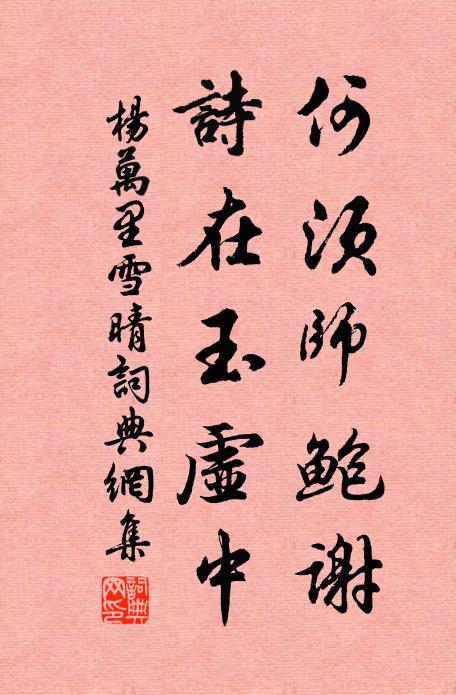 何須師鮑謝
詩在玉虛中
楊萬里雪晴詞典網集
詞典網印